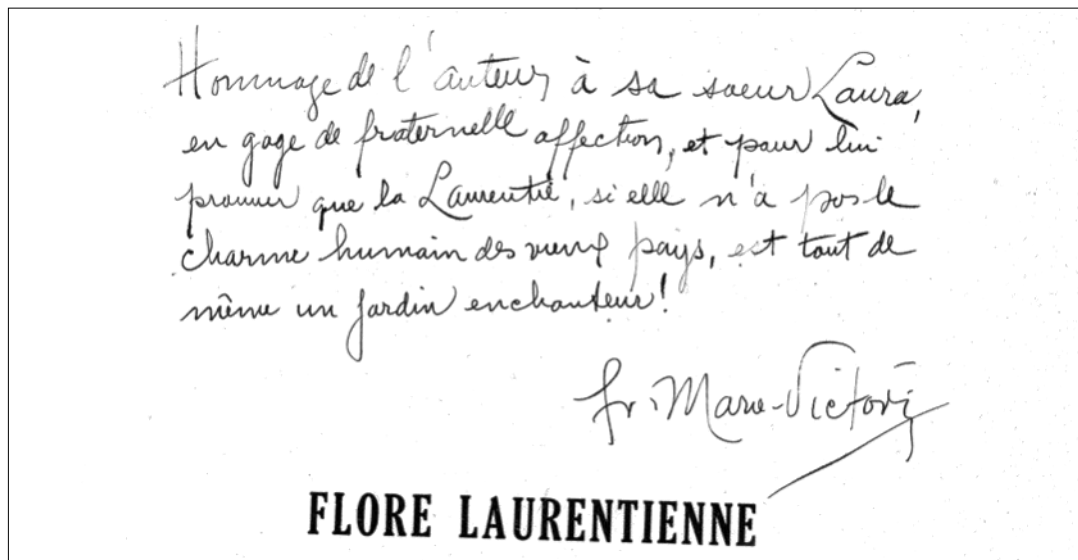 Hommage de l'auteur à sa soeur Laura,
en gage de fraternelle affection, et pour lui
prouver que la Laurentie, si elle n'a pas le
charme humain des vieux pays, est tout de
même un jardin enchanteur!
fr. Marie-Victorin
FLORE LAURENTIENNE